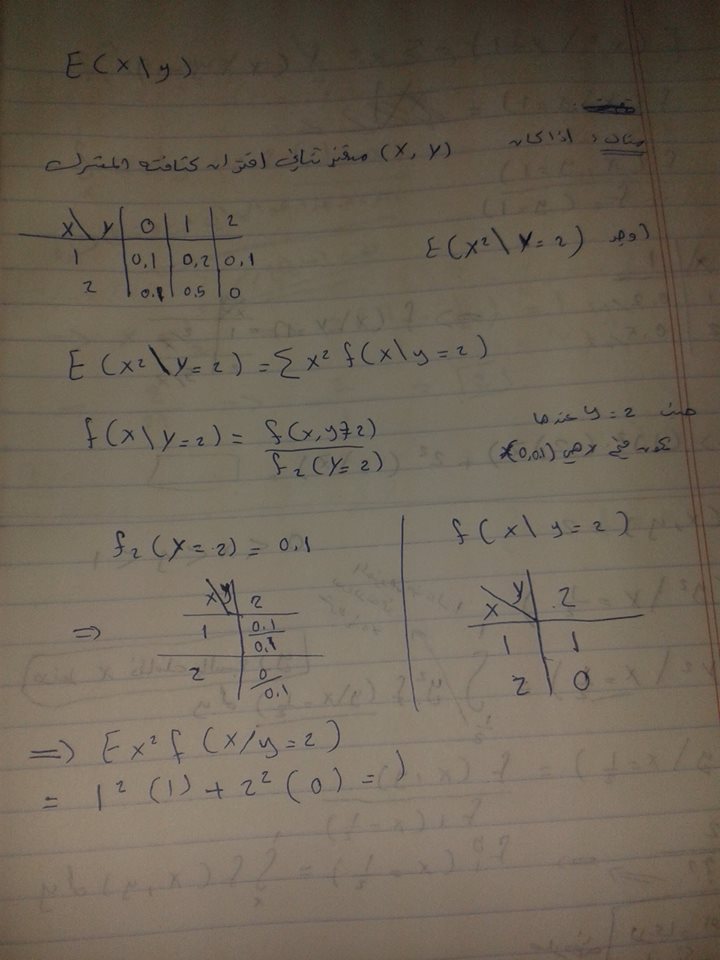 E(X\y)
مثال: اذا كان (X, Y) متغير ثنائي اقتران كثافته المشترك
X \ Y | 0 | 1 | 2
1 | 0,1 | 0,2 | 0,1
2 | 0.1 | 0.5 | 0
اوجد E(X²\Y=2)
E(X²\Y=2) = Σ x² f(x\y=2)
f(x\Y=2) = f(x, y=2) / f₂(Y=2)
حيث y=2 عندما
f₂(Y=2) = 0,1
⇒
X \ y | 2
1 | 0.1 / 0.1
2 | 0 / 0.1
f(x\y=2)
X \ Y | 2
1 | 1
2 | 0
⇒ Σx² f(x/y=2)
= 1² (1) + 2² (0) = 1